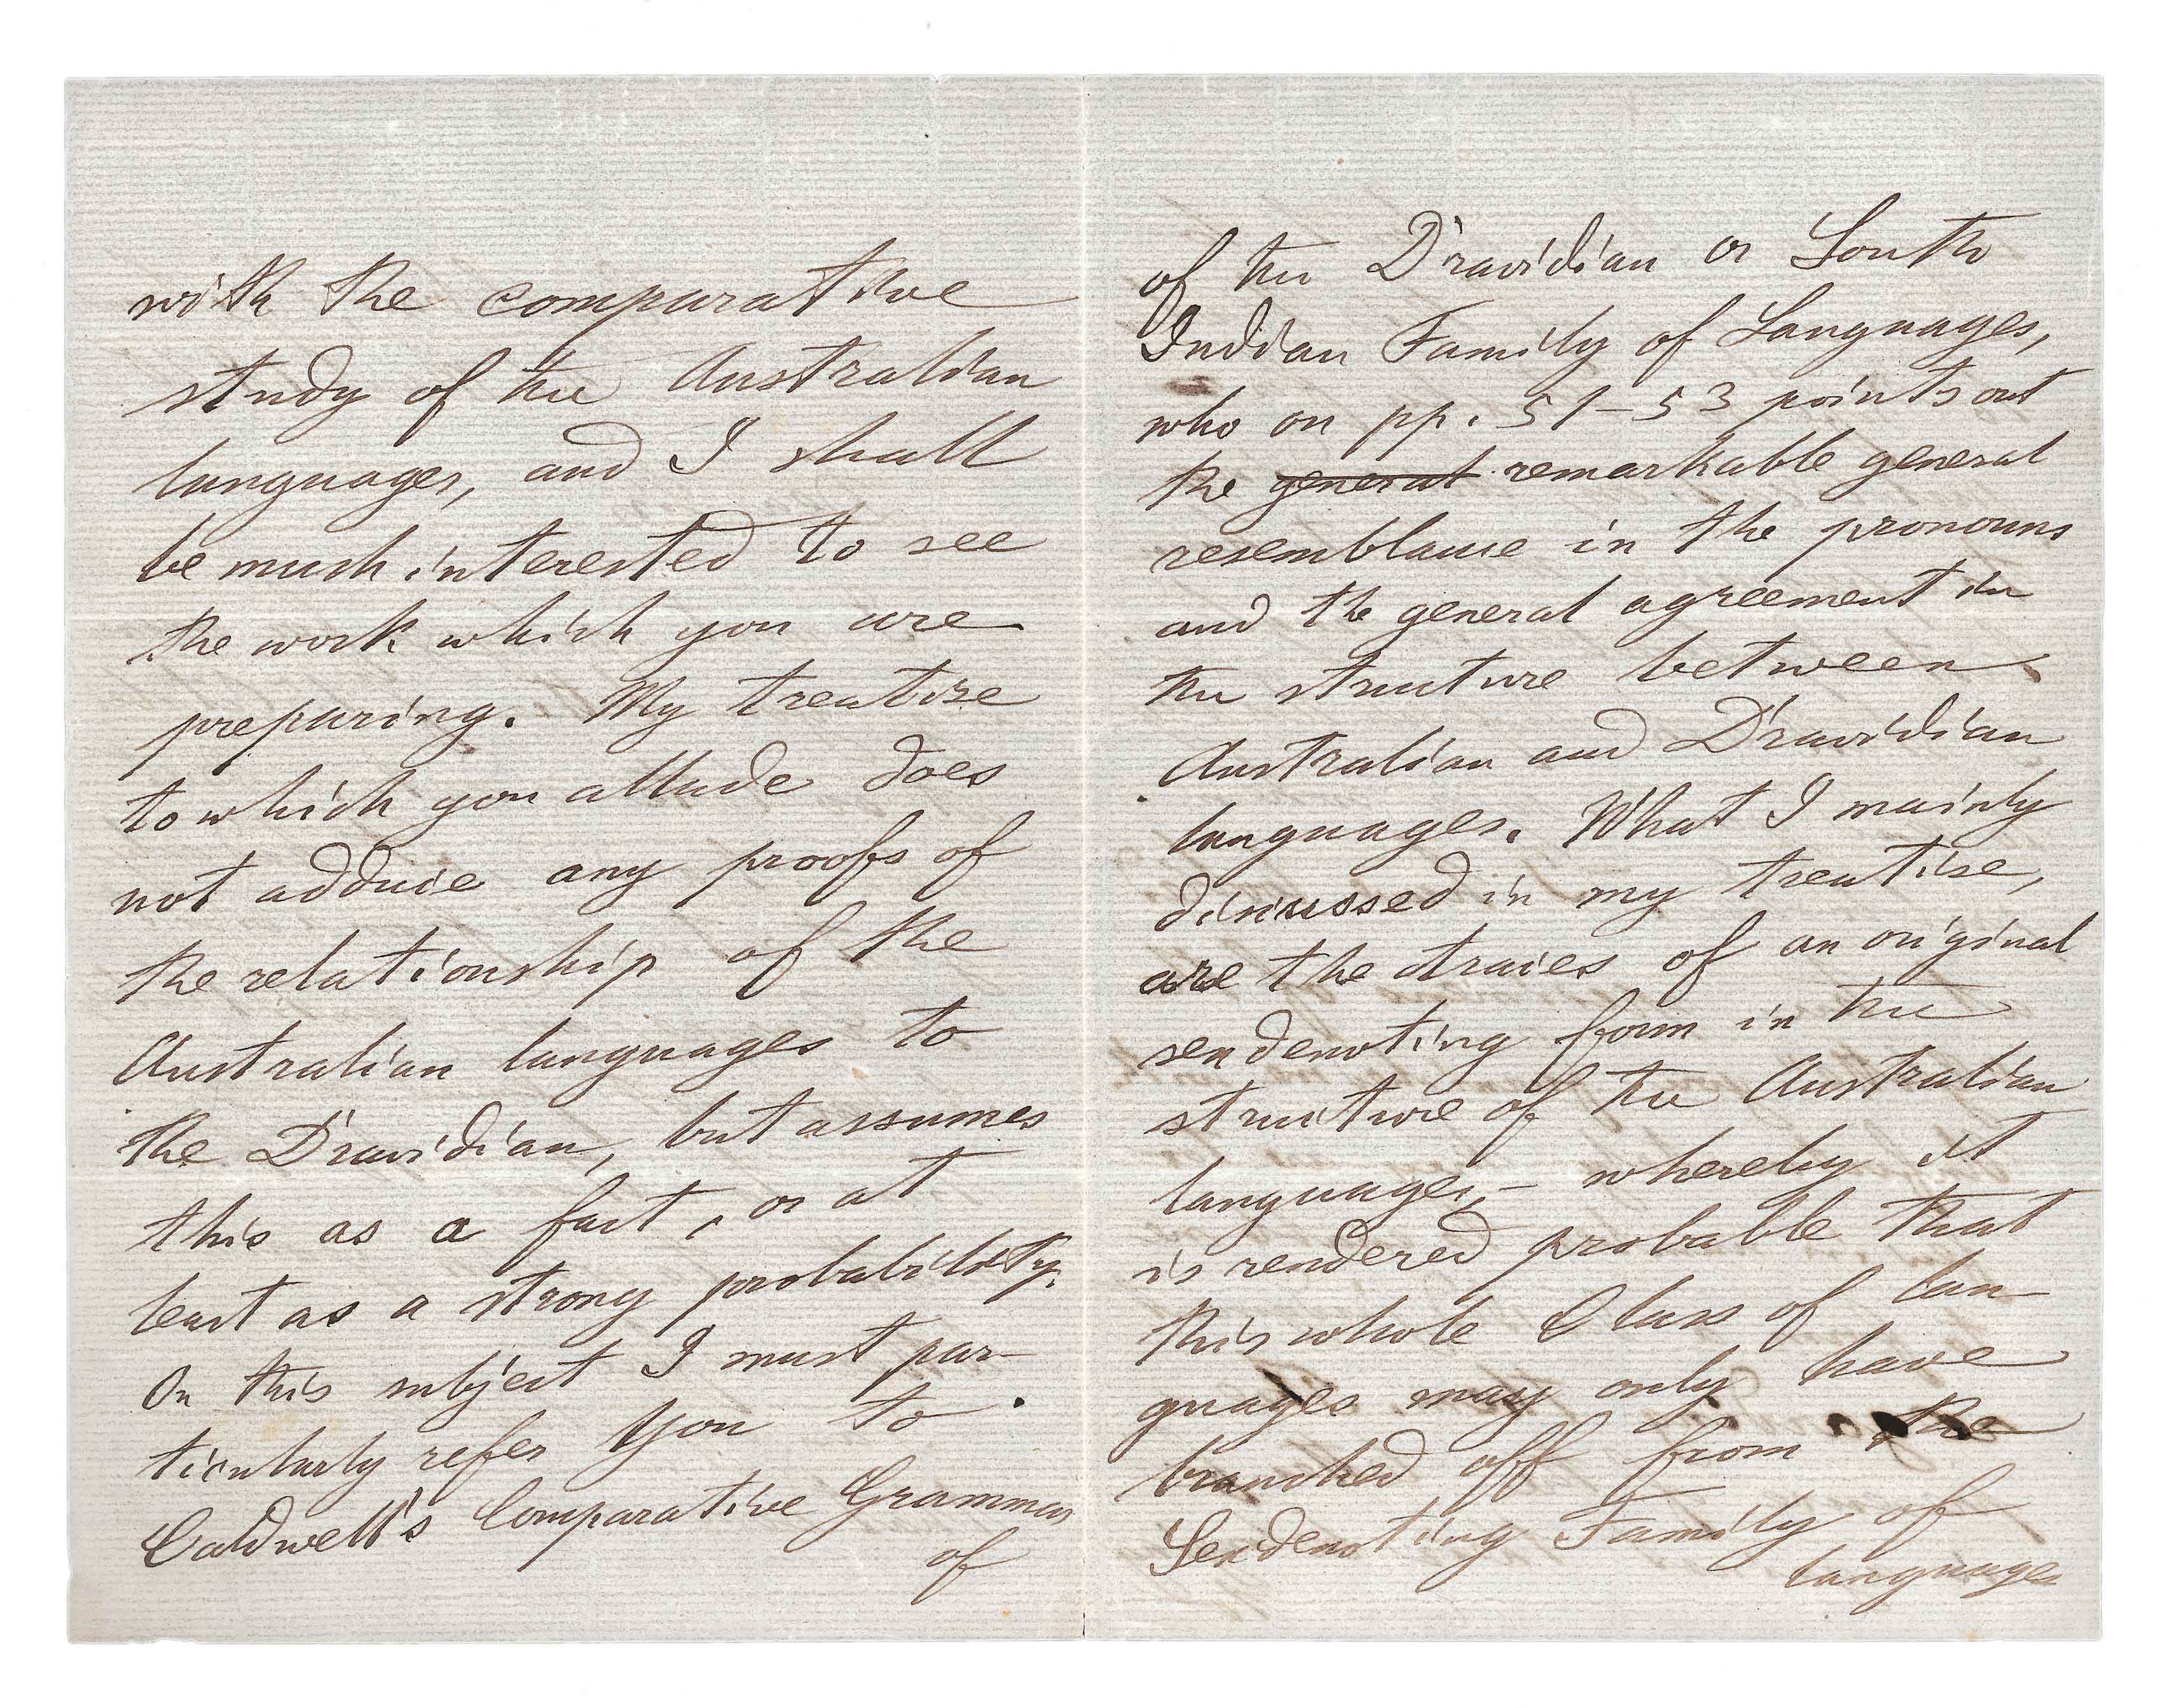 with the comparative
study of the Australian
languages, and I shall
be much interested to see
the work which you are
preparing. My treatise
to which you allude does
not adduce any proofs of
the relationship of the
Australian languages to
the Dravidian, but assumes
this as a fact, or at
least as a strong probability.
On this subject I must par-
ticularly refer you to
Caldwell's Comparative Grammar
of
of the Dravidian or South
Indian Family of Languages,
who on pp. 51-53 points out
the general remarkable general
resemblance in the pronouns
and the general agreement in
the structure between
Australian and Dravidian
languages. What I mainly
discussed in my treatise,
are the traces of an original
sexdenoting form in the
structure of the Australian
languages,- whereby it
is rendered probable that
this whole Class of lan-
guages may only have
branched off from the
Sexdenoting Family of
language